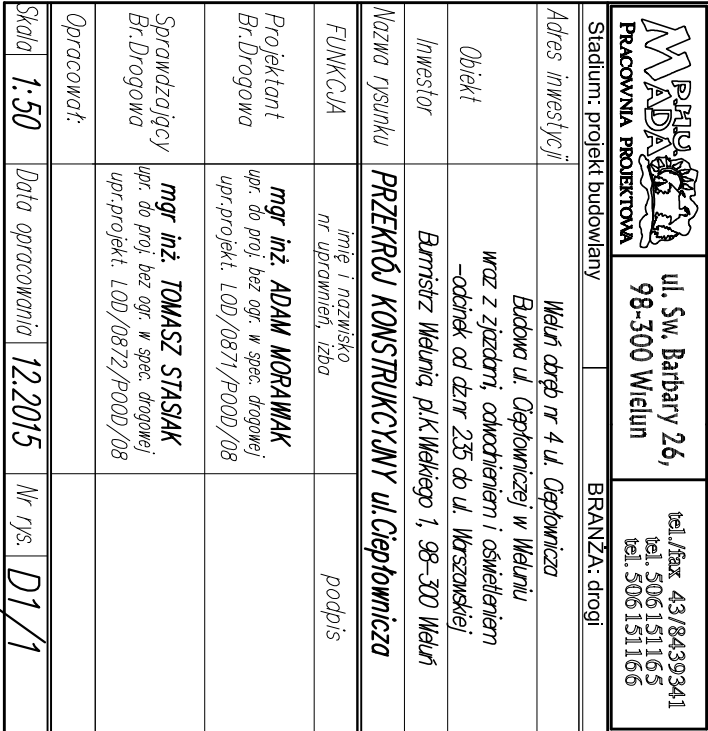 P.H.U.
MADA
PRACOWNIA PROJEKTOWA
ul. Sw. Barbary 26,
98-300 Wielun
tel./fax 43/8439341
tel. 506151165
tel. 506151166
Stadium: projekt budowlany
BRANŻA: drogi
Adres inwestycji
Wieluń obręb nr 4 ul. Ciepłownicza
Obiekt
Budowa ul. Ciepłowniczej w Wieluniu
wraz z zjazdami, odwodnieniem i oświetleniem
-odcinek od dz.nr 235 do ul. Warszawskiej
Inwestor
Burmistrz Wielunia, pl.K.Wielkiego 1, 98-300 Wieluń
Nazwa rysunku
PRZEKRÓJ KONSTRUKCYJNY ul.Ciepłownicza
FUNKCJA
imię i nazwisko
nr uprawnień, izba
podpis
Projektant
Br.Drogowa
mgr inż. ADAM MORAWIAK
upr. do proj. bez ogr. w spec. drogowej
upr.projekt. LOD/0871/POOD/08
Sprawdzający
Br.Drogowa
mgr inż. TOMASZ STASIAK
upr. do proj. bez ogr. w spec. drogowej
upr.projekt. LOD/0872/POOD/08
Opracował:
Skala 1:50 Data opracowania 12.2015 Nr rys. D1/1